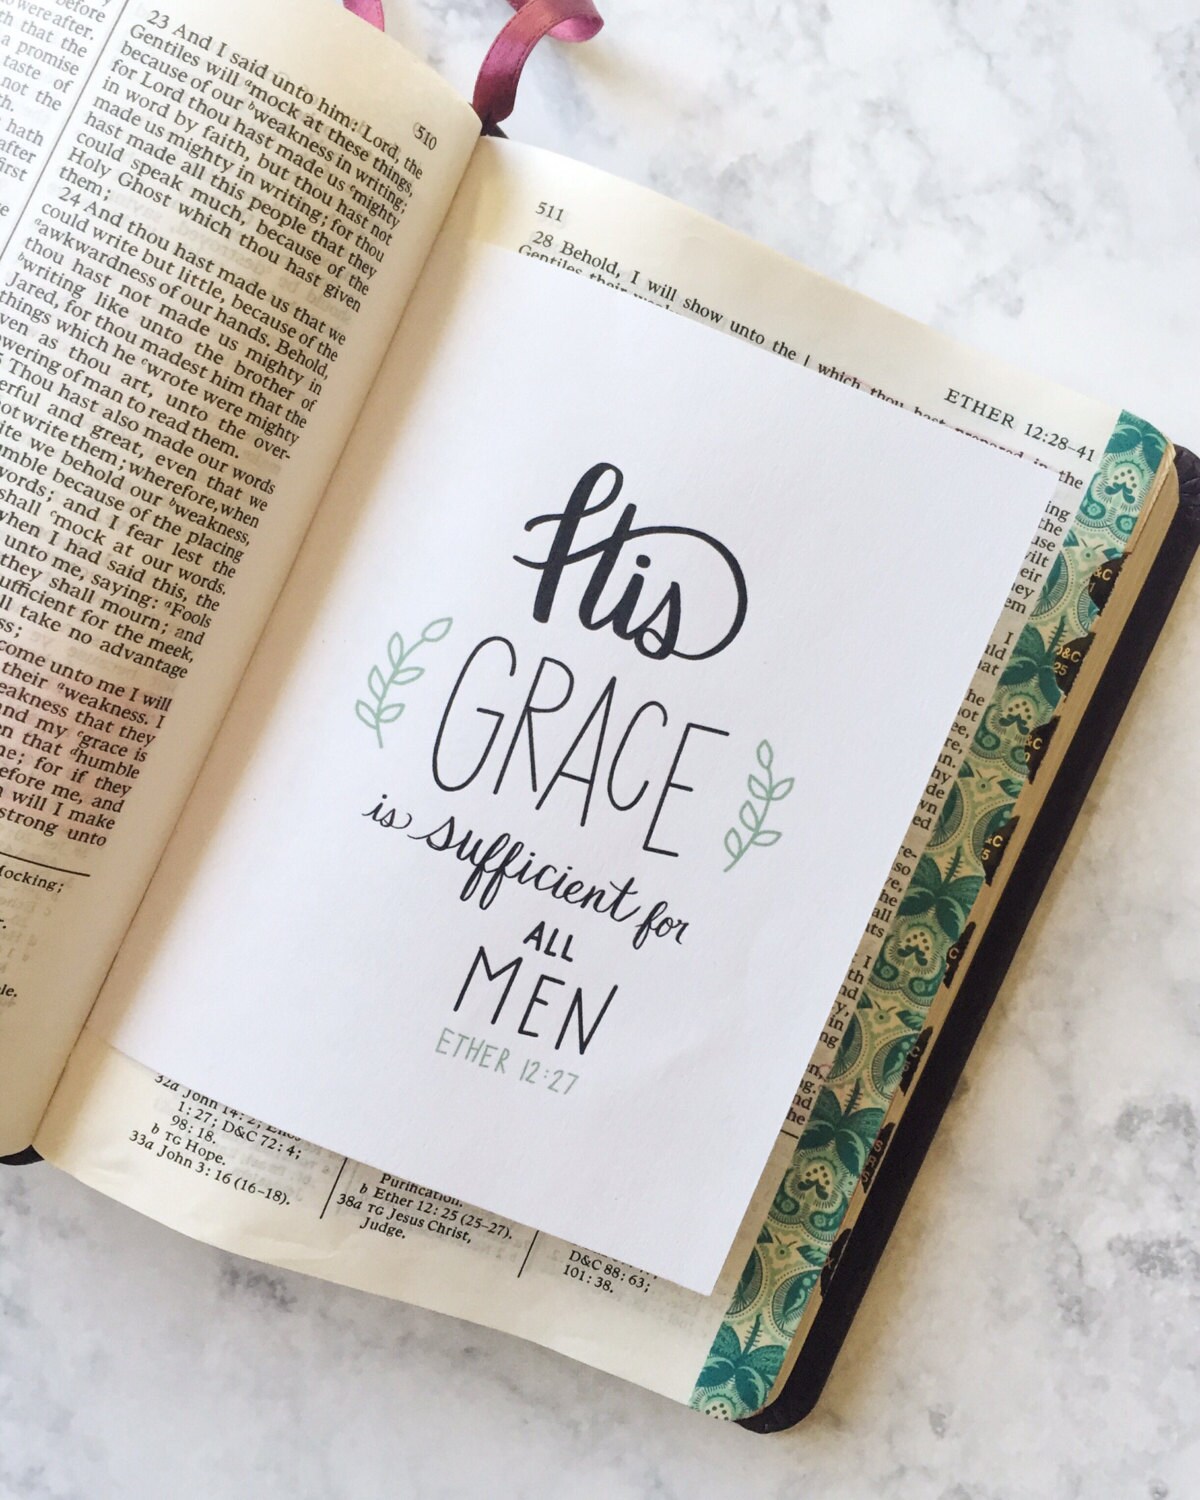 before
were after.
th that the
a promise
taste of
not the
th.
hath
after
first
510
23 And I said unto him: Lord, the
Gentiles will ᵃmock at these things,
because of our ᵇweakness in writing;
for Lord thou hast made us ᶜmighty
in word by faith, but thou hast not
made us mighty in writing; for thou
hast made all this people that they
could speak much, because of the
Holy Ghost which thou hast given
them;
24 And thou hast made us that we
could write but little, because of the
ᵃawkwardness of our hands. Behold,
thou hast not made us mighty in
ᵇwriting like unto the brother of
Jared, for thou madest him that the
things which he ᶜwrote were mighty
ven as thou art, unto the over-
wering of man to read them.
Thou hast also made our words
erful and great, even that we
ot write them; wherefore, when
ite we behold our ᵇweakness,
mble because of the placing
words; and I fear lest the
shall ᶜmock at our words.
when I had said this, the
unto me, saying: ᵃFools
they shall mourn; and
ufficient for the meek,
ll take no advantage
ss;
come unto me I will
their ᵃweakness. I
eakness that they
nd my ᶜgrace is
en that ᵈhumble
me; for if they
efore me, and
will I make
strong unto
ocking;
le.
511
ETHER 12:28–41
28 Behold, I will show unto the
Gentiles their
which thou hast prepared in the
His
GRACE
is sufficient for
ALL
MEN
ETHER 12:27
32a John 14:2;
1:27; D&C 72:4;
98:18.
b TG Hope.
33a John 3:16 (16–18).
Purification.
b Ether 12:25 (25–27).
38a TG Jesus Christ,
Judge.
D&C 88:63;
101:38.
D&C
25